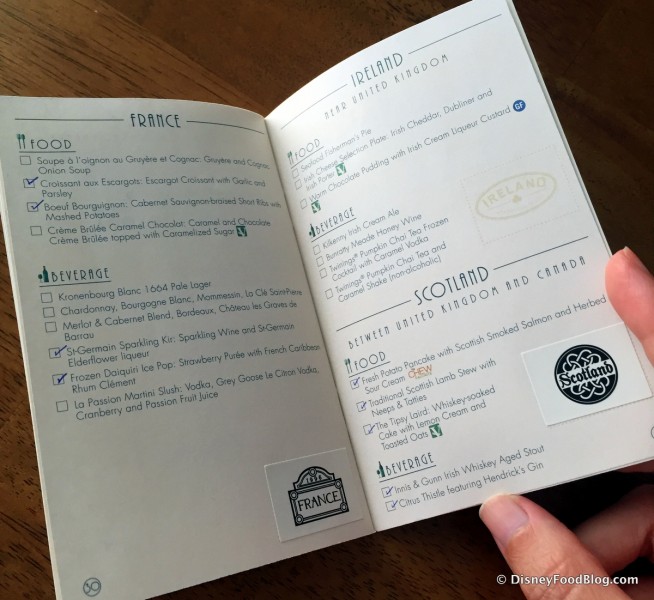 FRANCE
FOOD
Soupe à l'aignon au Gruyère et Cognac: Gruyère and Cognac
Onion Soup
Croissant aux Escargots: Escargot Croissant with Garlic and
Parsley
Boeuf Bourguignon: Cabernet Sauvignon-braised Short Ribs with
Mashed Potatoes
Crème Brûlée Caramel Chocolat: Caramel and Chocolate
Crème Brûlée topped with Caramelized Sugar V
BEVERAGE
Kronenbourg Blanc 1664 Pale Lager
Chardonnay, Bourgogne Blanc, Mommessin, La Clé Saint-Pierre
Merlot & Cabernet Blend, Bordeaux, Château les Graves de
Barrau
St-Germain Sparkling Kir: Sparkling Wine and St-Germain
Elderflower liqueur
Frozen Daiquiri Ice Pop: Strawberry Purée with French Caribbean
Rhum Clément
La Passion Martini Slush: Vodka, Grey Goose Le Citron Vodka,
Cranberry and Passion Fruit Juice
FRANCE
IRELAND
NEAR UNITED KINGDOM
FOOD
Seafood Fisherman's Pie
Irish Cheese Selection Plate: Irish Cheddar, Dubliner and
Irish Porter V
Warm Chocolate Pudding with Irish Cream Liqueur Custard GF
V
BEVERAGE
Kilkenny Irish Cream Ale
Bunratty Meade Honey Wine
Twinings® Pumpkin Chai Tea Frozen
Cocktail with Caramel Vodka
Twinings® Pumpkin Chai Tea and
Caramel Shake (non-alcoholic)
IRELAND
SCOTLAND
BETWEEN UNITED KINGDOM AND CANADA
FOOD
Fresh Potato Pancake with Scottish Smoked Salmon and Herbed
Sour Cream CHEW
Traditional Scottish Lamb Stew with
Neeps & Tatties
The Tipsy Laird: Whiskey-soaked
Cake with Lemon Cream and
Toasted Oats V
Scotland
BEVERAGE
Innis & Gunn Irish Whiskey Aged Stout
Citrus Thistle featuring Hendrick's Gin
© DisneyFoodBlog.com